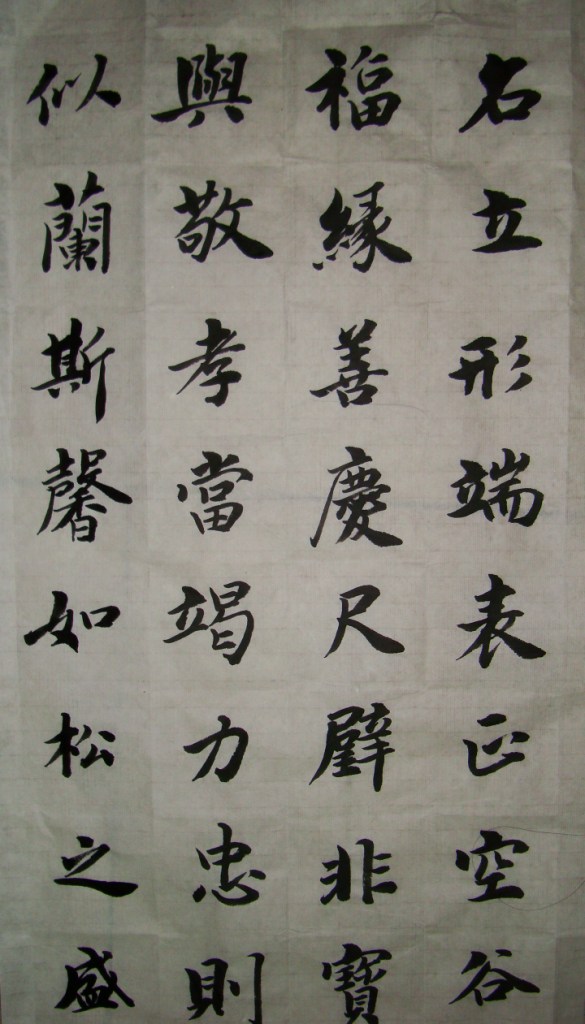 名立形端表正空谷
福緣善慶尺璧非寶
與敬孝當竭力忠則
似蘭斯馨如松之盛